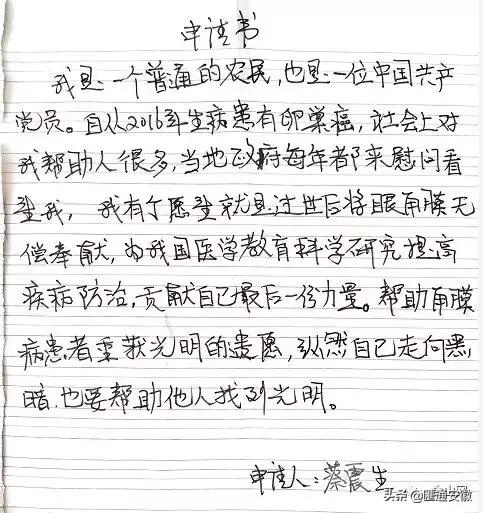 申请书
我是一个普通的农民,也是一位中国共产
党员。自从2016年生病患有卵巢癌,社会上对
我帮助人很多,当地政府每年都来慰问看
望我,我有个愿望就是过世后将眼角膜无
偿奉献,为我国医学教育科学研究提高
疾病防治,贡献自己最后一份力量。帮助角膜
病患者重获光明的遗愿,纵然自己走向黑
暗.也要帮助他人找到光明。
申请人:蔡震生
头条 @匯通安徽